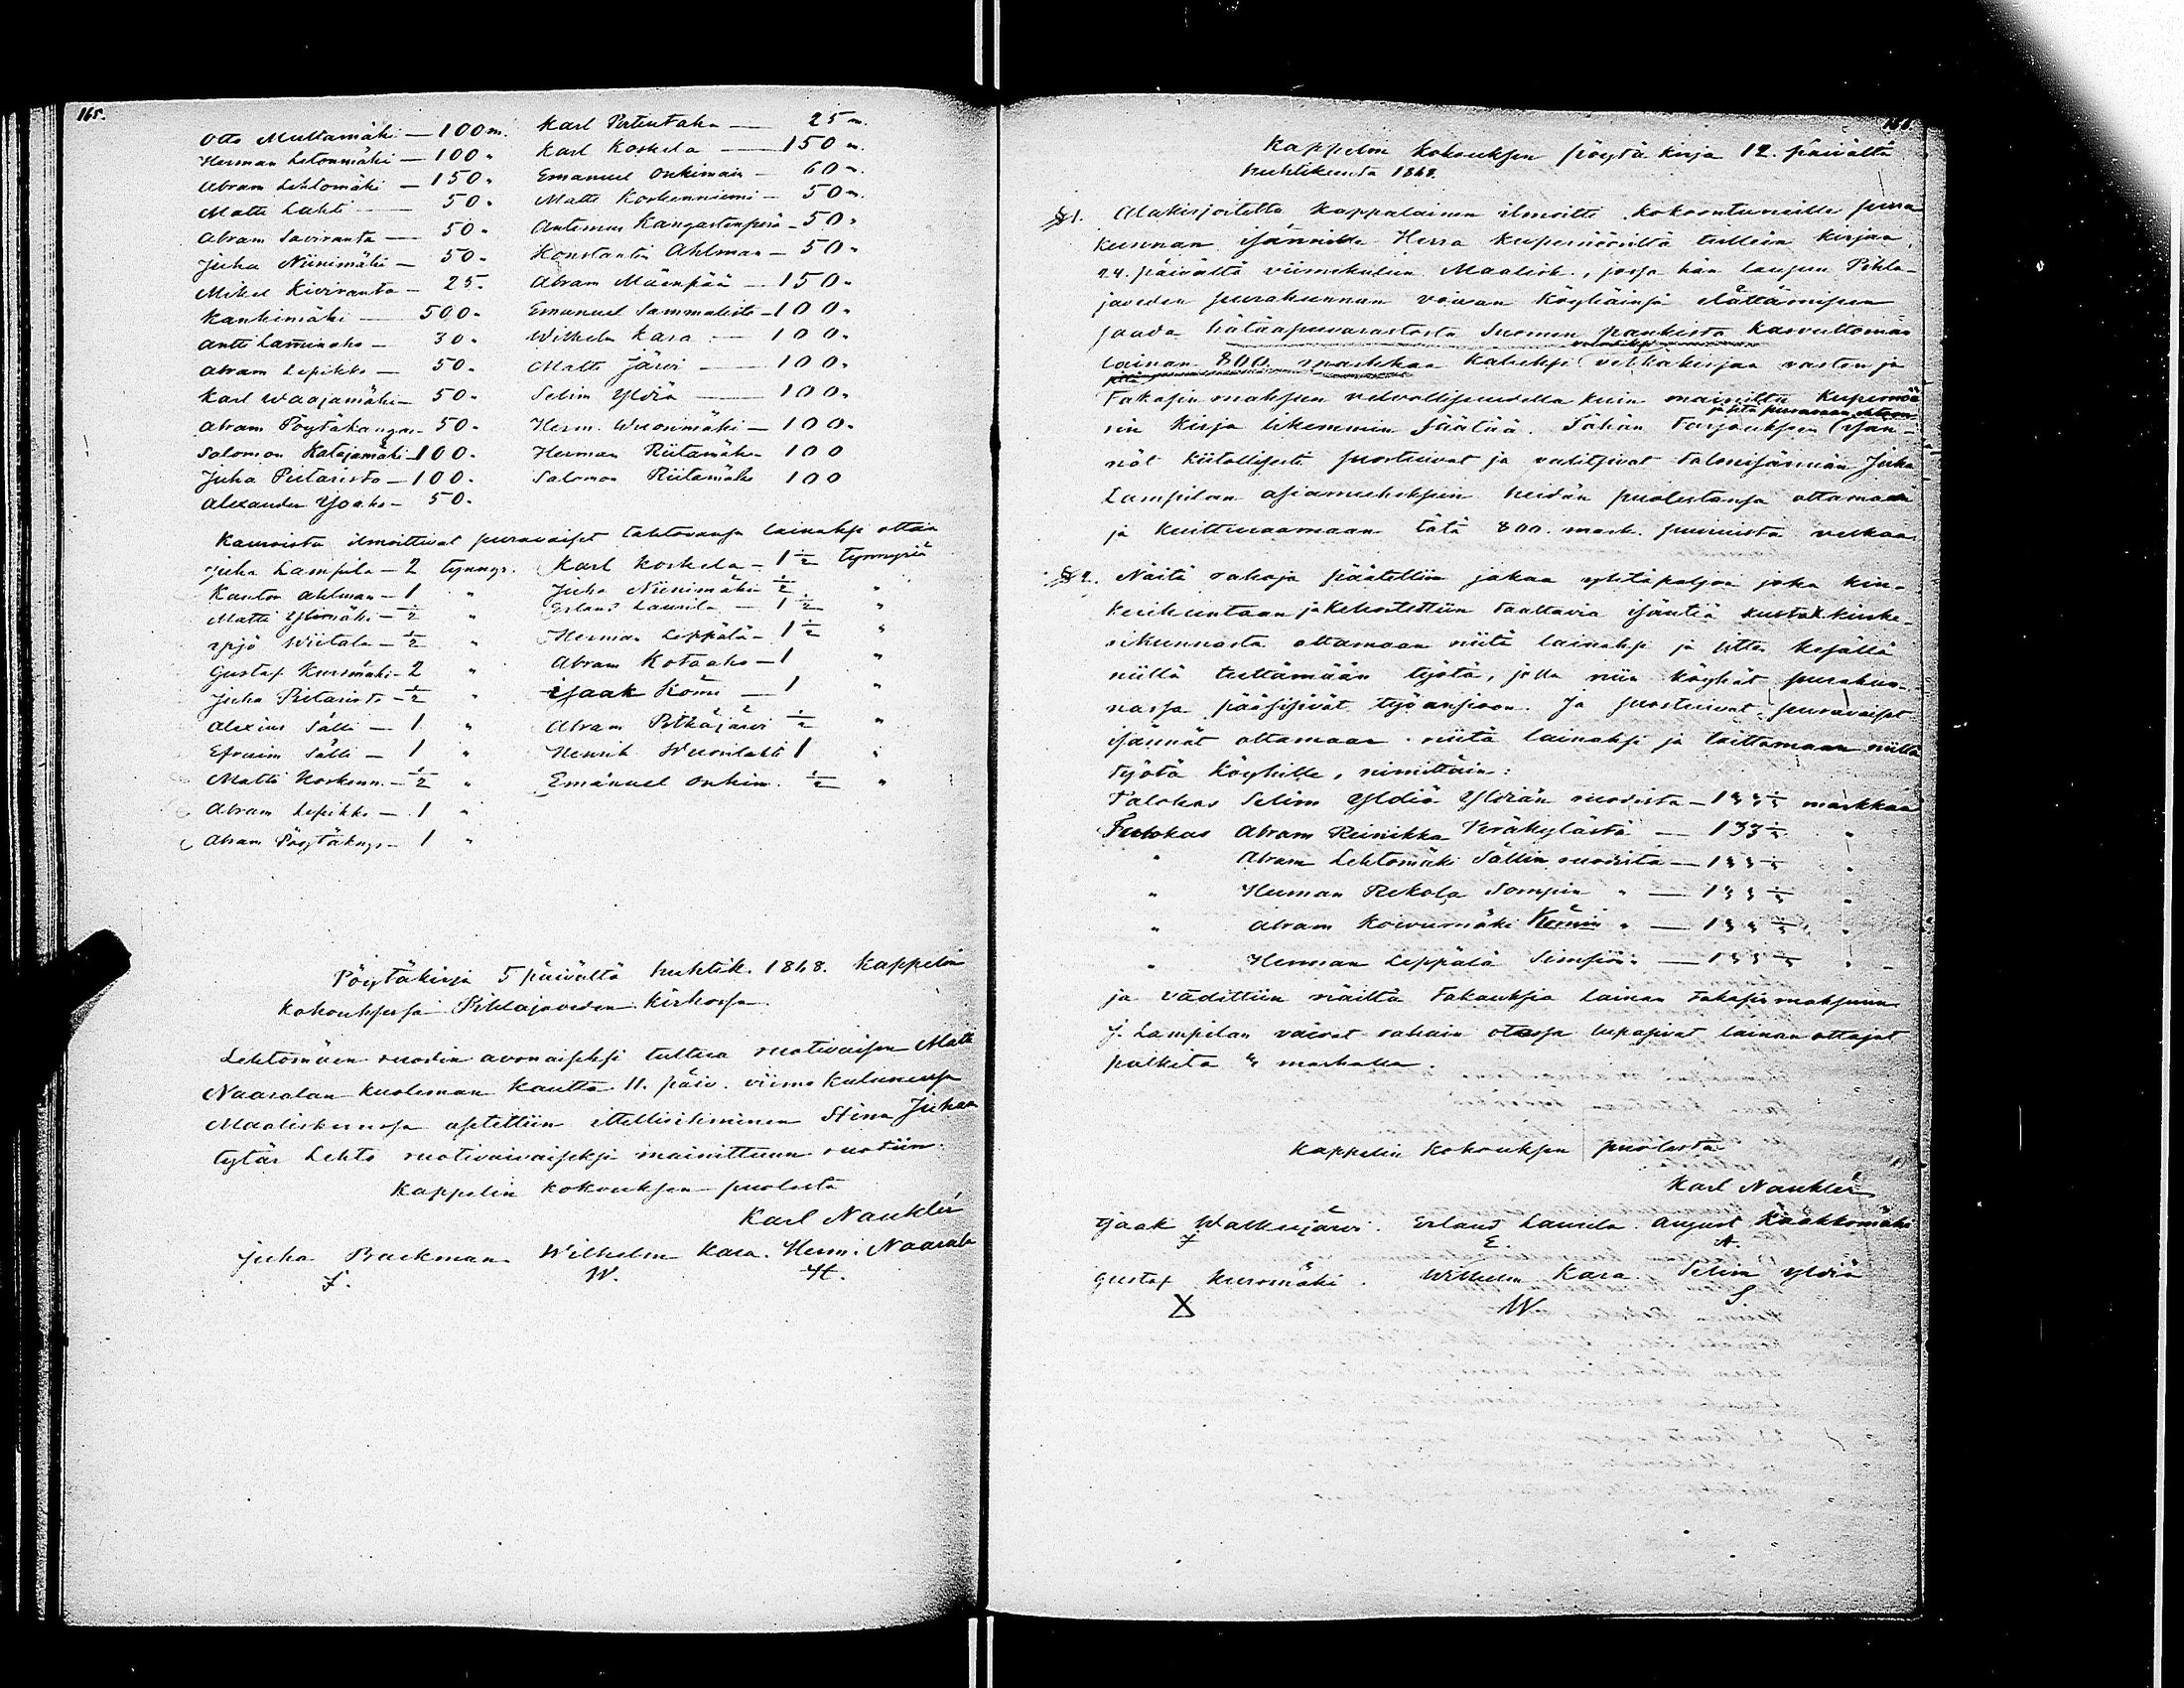 165.
Otto Multamäki — 100 m.
Herman Letonmäki — 100 "
Abram Lehtomäki — 150 "
Matti Lahti — 50 "
Abram Saviranta — 50 "
Juha Niinimäki — 50 "
Mikel Kiviranta — 25 "
Kankimäki — 500 "
Antti Lamminaho — 30 "
Abram Lepikko — 50 "
Karl Waajamäki — 50 "
Abram Pöytäkangas 50 "
Salomon Katajamäki 100 "
Juha Pietaristo — 100 "
Alexander Yoaho — 50 "
Karl Pertentaho — 25 m.
Karl Koskela — 150 "
Emanuel Onkimain — 60 "
Matti Koskenniemi — 50 "
Antemus Kangastenperä — 50 "
Konstantin Ahlman — 50 "
Abram Mäenpää — 150 "
Emanuel Sammalisto — 100 "
Wilhelm Kara — 100 "
Matti Järvi — 100 "
Selim Yldiä — 100 "
Herm. Wuorimäki — 100 "
Herman Riitamäki 100
Salomon Riitamäki 100
Kauroista ilmoittivat seuraavaiset tahtovansa lainaksi ottaa
Juha Lampila — 2 tynnyr.
Kantor Ahlman — 1 "
Matti Ylimäki — 1/2 "
Yrjö Wiitala — 1/2 "
Gustaf Kuromäki — 2 "
Juha Pietaristo — 1/2 "
Alexius Sälli — 1 "
Efraim Sälli — 1 "
Matti Koskenn. — 1/2 "
Abram Lepikko — 1 "
Abram Pöytäkngs — 1 "
Karl Koskela — 1 1/2 tynnyriä
Juha Niinimäki 1/2 "
Erland Laurila — 1 1/2 "
Herman Leppälä — 1 1/2 "
Abram Kotaaho — 1 "
Isaak Kömi — 1 "
Abram Pitkäjärvi 1/2 "
Henrik Wuorilahti 1 "
Emanuel Onkim. 1/2 "
Pöytäkirja 5 päivältä huhtik. 1868. Kappelin
kokouksessa Pihlajaveden kirkossa.
Lehtomäen ruodin avonaiseksi tultua ruotivaisen Matti
Naaralan kuoleman kautta 11. päiv. viime kuluneessa
Maaliskuussa asetettiin itellisihminen Stina Juhan
tytär Lehto ruotivaivaiseksi mainittuun ruotiin.
Kappelin kokouksen puolesta
Karl Naukler
Juha Backman Wilhelm Kara. Herm. Naarala
J. W. H.
Kappelin kokouksen pöytäkirja 12. päivältä
huhtikuuta 1868.
§1. Alakirjoitettu kappalainen ilmoitti kokoontuneille seura
kunnan isännille Herra Kupernööriltä tulleen kirjan,
24. päivältä viimekulun. Maalisk., jossa hän laupuu Pihla-
javeden seurakunnan voivan köyhäinsä elättämiseen
saada hätäapuvarastosta Suomen pankista kasvuttoman
lainan 800 markkaa kahdeksi velkakirjaa vasten ja
takasin maksun velvollisuudella kuin mainittu Kupernöö
rin kirja likemmin säätää. Tähän tarjoukseen isän-
nät kiitollisesti suostuivat ja valitsivat talonisännän Juha
Lampilan asiamieheksein heidän puolestansa ottamaan
ja kuitteeraamaan tätä 800. mark. suuruista velkaa.
§2. Näitä rahoja päätettiin jakaa yhtäpaljon joka kin-
kerikuntaan ja kehoitettiin taattavia isäntiä kustaki kinke-
rikunnasta ottamaan niitä lainaksi ja sitte kesällä
niillä teettämään työtä, jotta niin köyhät seurakun-
nassa pääsisivät työansioon. Ja suostuivat seuraavaiset
isännät ottamaan niitä lainaksi ja laittamaan niillä
työtä köyhille, nimittäin:
Talokas Selim Yldiä Yldiän ruodista — 133 1/3 markkaa
Talokas Abram Reinikka Peräkylästä — 133 1/3 "
" Abram Lehtomäki Sällin ruodista — 133 1/3 "
" Herman Rekola Sompin " — 133 1/3 "
" Abram Koivumäki Kömin " — 133 1/3 "
" Herman Leppälä Simsiön " — 133 1/3 "
ja vaadittiin näiltä takauksia lainan takasin maksuun.
J. Lampilan vaivat rahain otossa lupasivat lainan ottajat
palkita 4 markalla.
Kappelin kokouksen puolesta
Karl Naukler
Isaak Walkejärvi. Erland Laurila. August Kääkkömäki
J E. A.
Gustaf Kuromäki. Wilhelm Kara. Selim Yldiä
X W S.